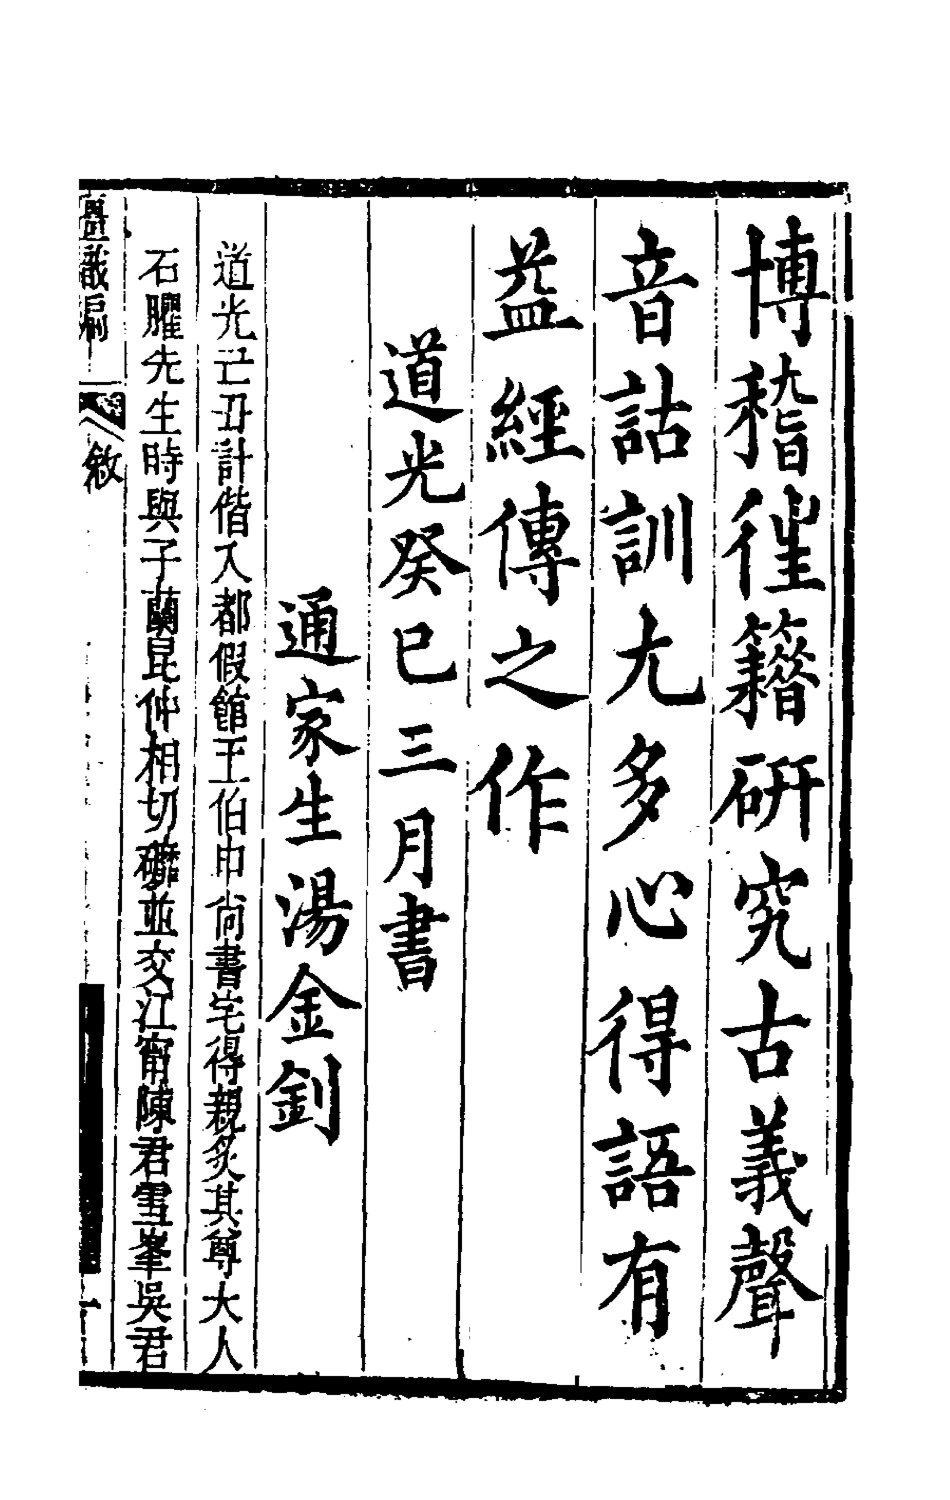 博稽徃籍研究古義聲
音詁訓尤多心得語有
益經傳之作
道光癸巳三月書
通家生湯金釗
道光己丑計偕入都假館王伯申尚書宅得親炙其尊大人
石臞先生時與子蘭昆仲相切礳並交江甯陳君雪峯吳君
彊識編 敘 一